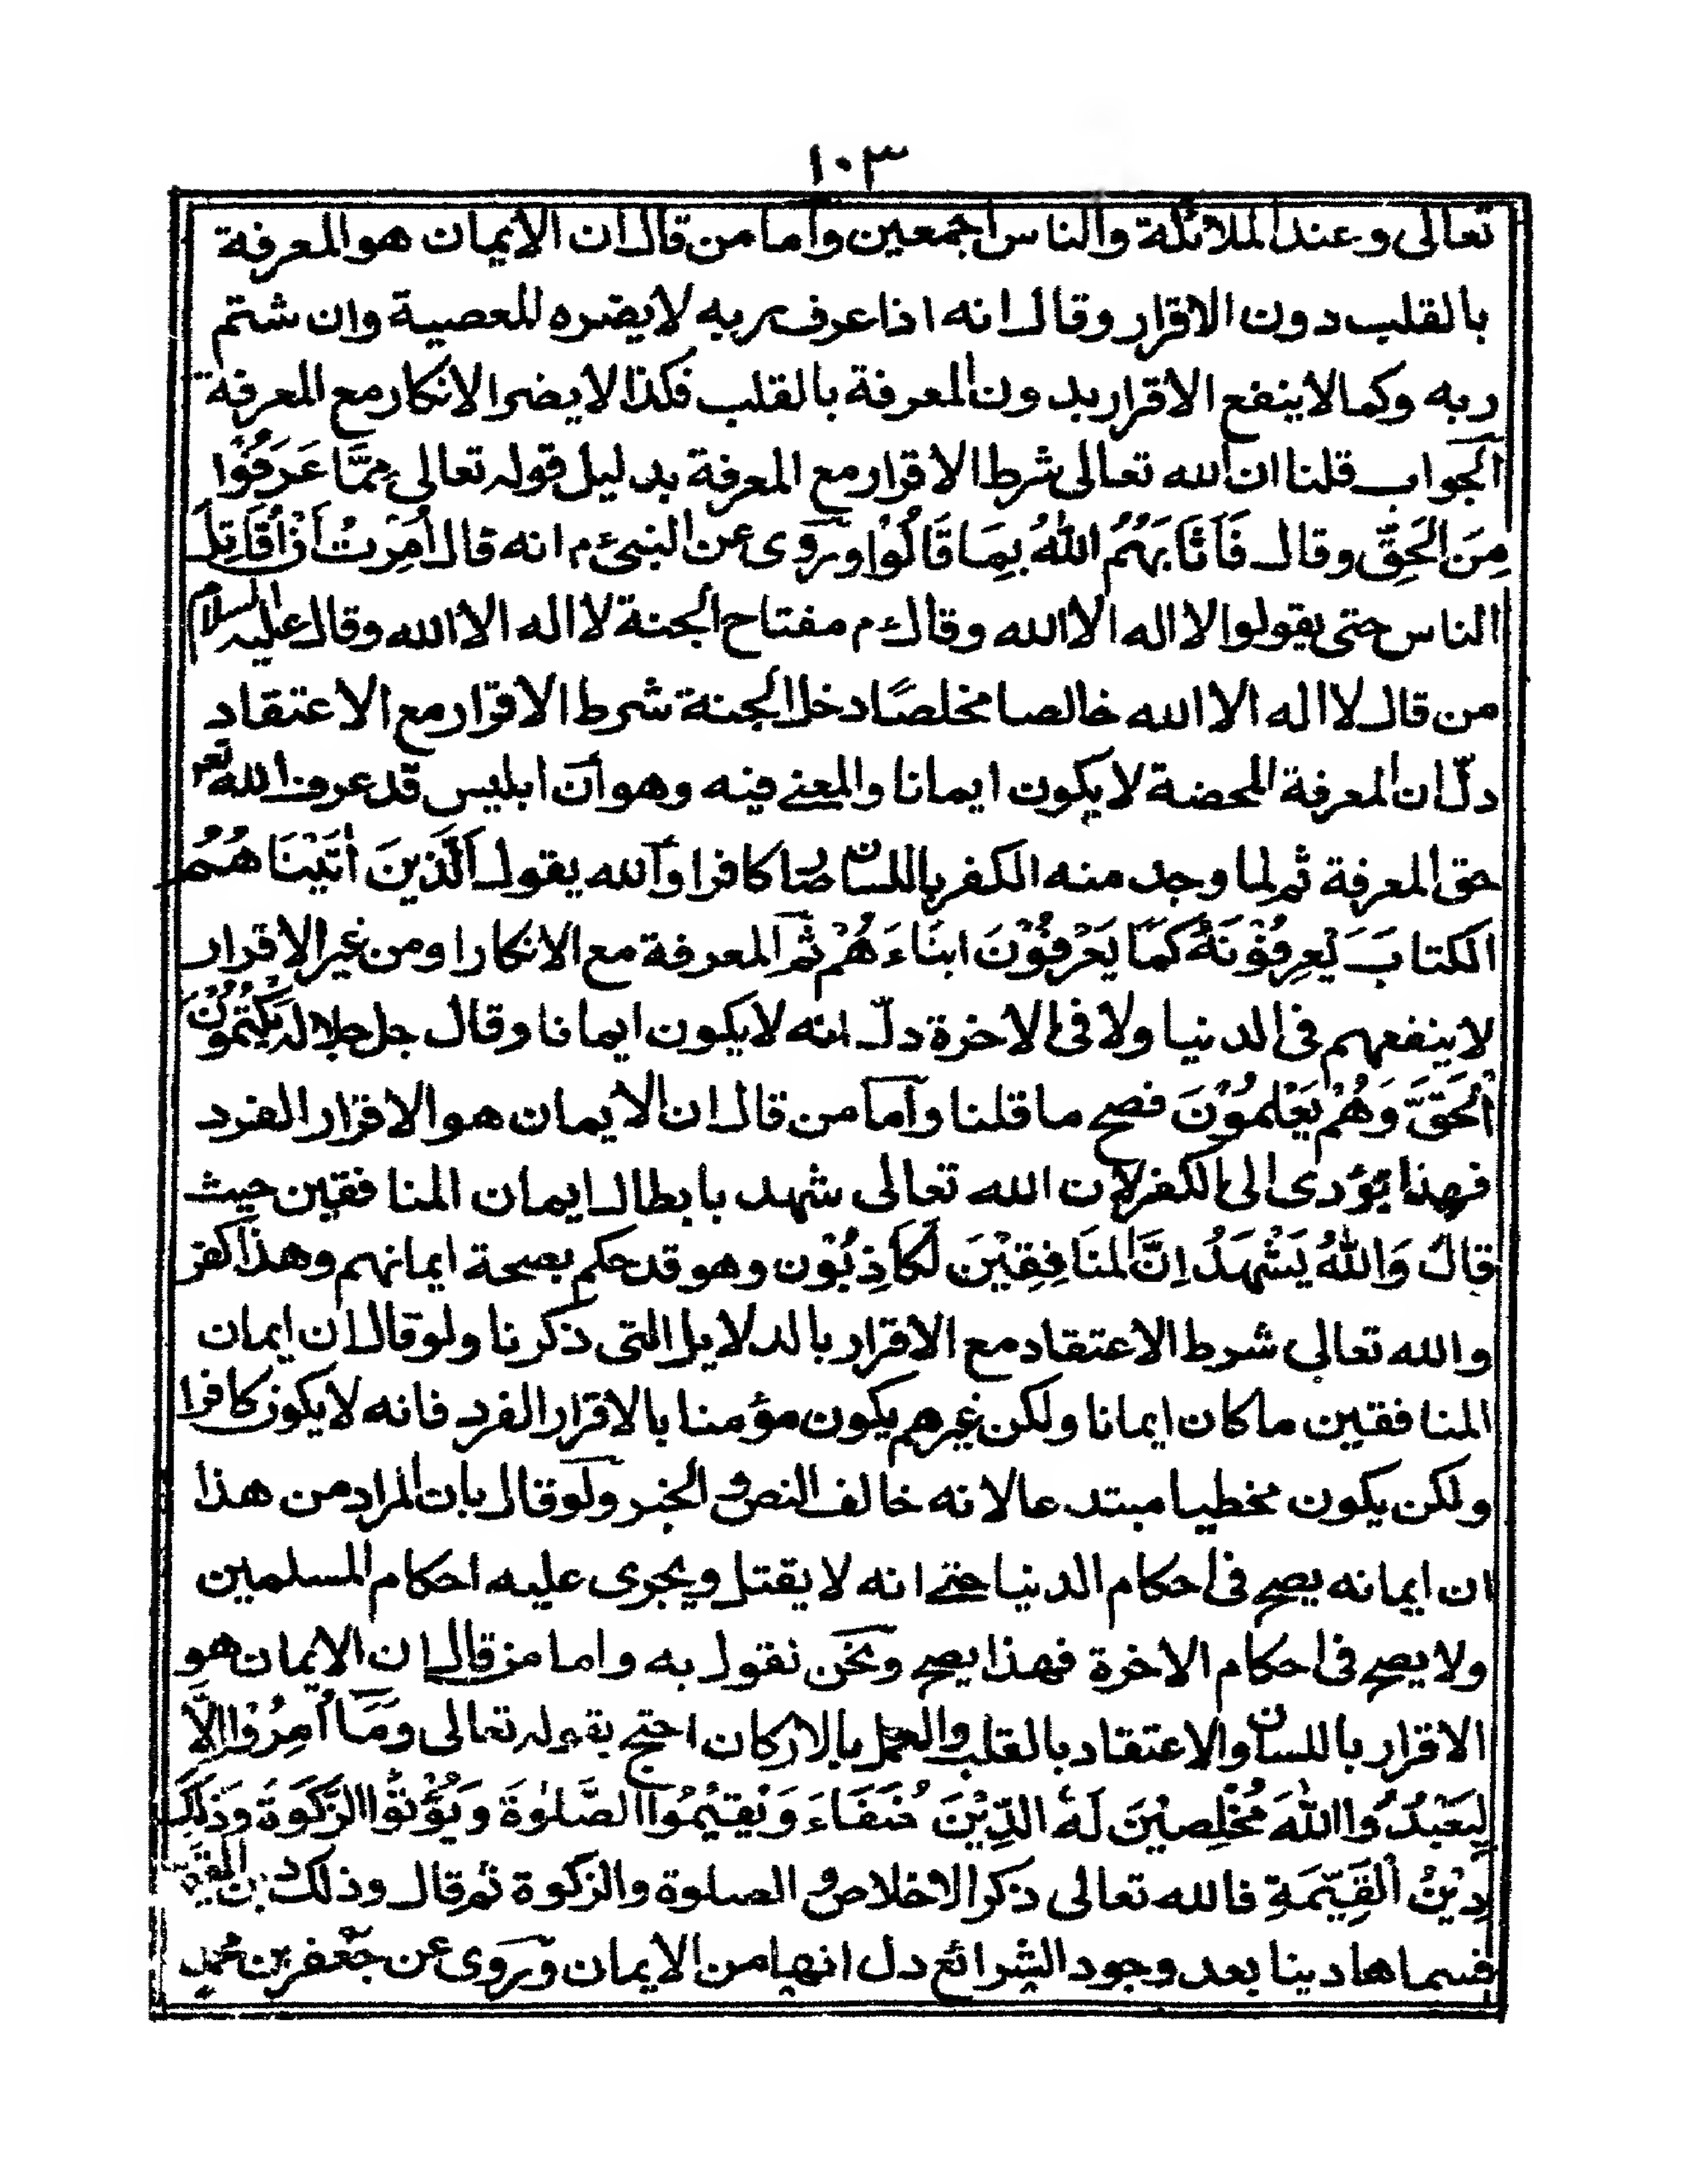 ١٠٣
تعالى وعند الملائكة والناس اجمعين واما من قال ان الايمان هو المعرفة
بالقلب دون الاقرار وقال انه اذا عرف ربه لا يضره المعصية وان شتم
ربه وكما لا ينفع الاقرار بدون المعرفة بالقلب فكذا لا يضر الانكار مع المعرفة
الجواب قلنا ان الله تعالى شرط الاقرار مع المعرفة بدليل قوله تعالى مِمَّا عَرَفُوْا
مِنَ الْحَقِّ وقال فَاَثَابَهُمُ اللهُ بِمَا قَالُوْا وروى عن النبى ء م انه قال اُمِرْتُ اَنْ اُقَاتِلَ
الناس حتى يقولوا لا اله الا الله وقال ء م مفتاح الجنة لا اله الا الله وقال عليه السلام
من قال لا اله الا الله خالصا مخلصًا دخل الجنة شرط الاقرار مع الاعتقاد
دلّ ان المعرفة المحضة لا يكون ايمانا والمعنے فيه وهو أن ابليس قد عرف الله تعر
حق المعرفة ثم لما وجد منه الكفر باللسان صار كافرا والله يقول اَلَّذِينَ اٰتَيْنَاهُمُ
الكتابَ يَعْرِفُوْنَهُ كَمَا يَعْرِفُوْنَ ابنَاءَهُمْ ثم المعرفة مع الانكار ا ومن غير الاقرار
لا ينفعهم فى الدنيا ولا فى الاخرة دلّ انه لا يكون ايمانا وقال جل جلاله يَكْتُمُوْنَ
الْحَقَّ وَهُمْ يَعْلَمُوْنَ فصح ما قلنا واما من قال ان الايمان هو الاقرار الفرد
فهذا يؤدى الى الكفر لان الله تعالى شهد بابطال ايمان المنافقين حيث
قال وَاللهُ يَشْهَدُ اِنَّ الْمنَافِقِيْنَ لَكَاذِبُوْن وهو قد حكم بصحة ايمانهم وهذا كفر
والله تعالى شرط الاعتقاد مع الاقرار بالدلايل التى ذكرنا ولو قال ان ايمان
المنافقين ما كان ايمانا ولكن غيرهم يكون مؤمنا بالاقرار الفرد فانه لا يكون كافرا
ولكن يكون مخطيا مبتدعا لانه خالف النص و الخبر ولو قال بان المراد من هذا
ان ايمانه يصح فى احكام الدنيا حتے انه لا يقتل ويجرى عليه احكام المسلمين
ولا يصح فى احكام الاخرة فهذا يصح ونحن نقول به واما من قال ان الايمان هو
الاقرار باللسان والاعتقاد بالقلب والعمل بالاركان احتج بقوله تعالى وَمَا اُمِرُوْا اِلَّا
لِيَعْبُدُوا اللهَ مُخْلِصِيْنَ لَهُ الدِّيْنَ حُنَفَاءَ وَيُقِيْمُوا الصَّلٰوةَ وَيُؤْتُوا الزَّكٰوةَ وَذٰلِكَ
دِيْنُ الْقَيِّمَةِ فالله تعالى ذكر الاخلاص و الصلوة والزكوة ثم قال وذلك دين القيمة
فسماها دينا بعد وجود الشرائع دل انها من الايمان وروى عن جعفر بن محمد